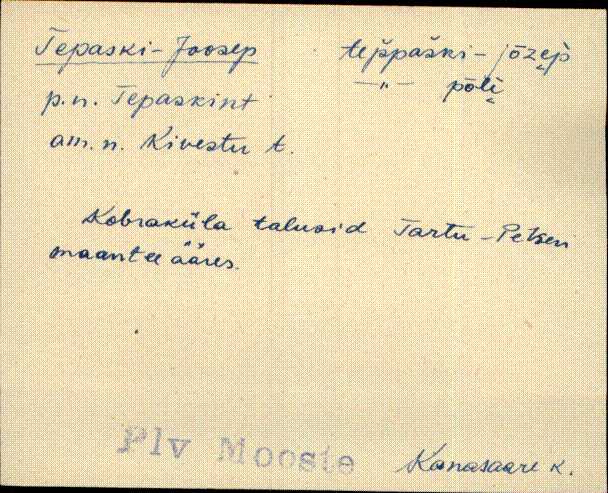 Tepaski-Joosep tep̌paški-jōzep̌
-"- pōlè
p.n. Tepaskint
am.n. Kivestu t.
Kobraküla talusid Tartu-Petseri
maantee ääres.
Plv Mooste
Kanasaare k.